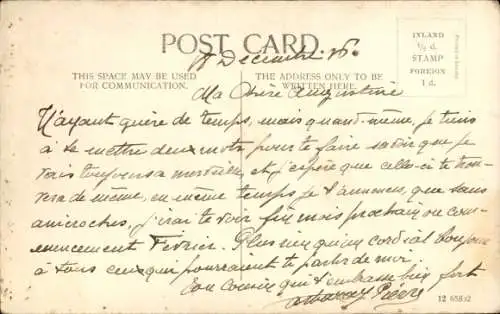 POST CARD.
INLAND
½ d.
STAMP
FOREIGN
1 d.
THIS SPACE MAY BE USED
FOR COMMUNICATION.
THE ADDRESS ONLY TO BE
WRITTEN HERE.
Décembre
Ma Chère Augustine
N'ayant guère de temps, mais quand-même, je tiens
à te mettre deux mots pour te faire savoir que je
vais toujours à merveille, et j'espère que celle-ci te trou-
vera de même, en même temps je t'annonce, que sans
anicroches, j'irai te voir fin mois prochain ou com-
mencement Février. Plus rien qu'un cordial bonjour
à tous ceux qui pourraient te parler de moi.
Ton cousin qui t'embrasse bien fort
Pierre
12 65892